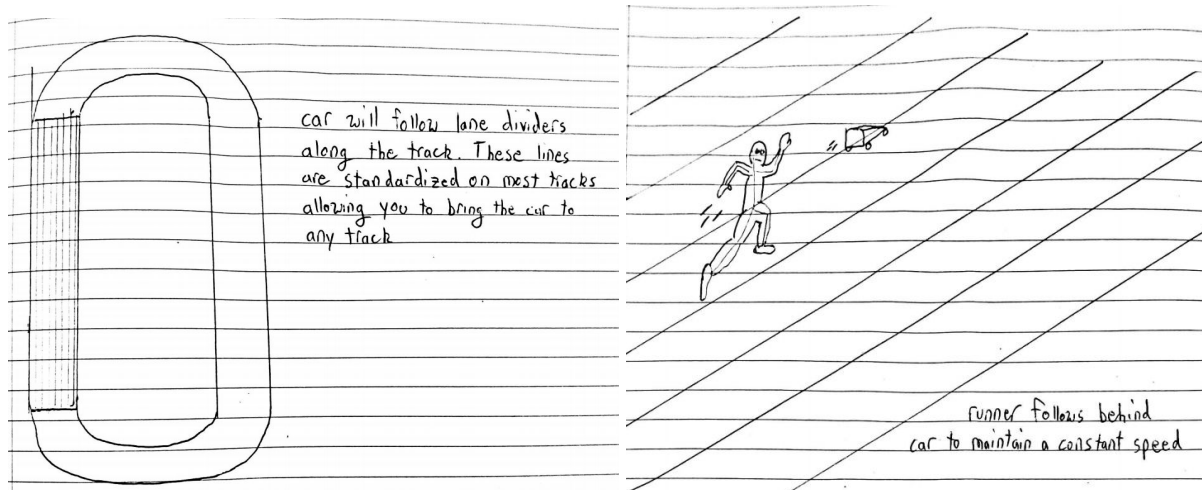 car will follow lane dividers
along the track. These lines
are standardized on most tracks
allowing you to bring the car to
any track
runner follows behind
car to maintain a constant speed